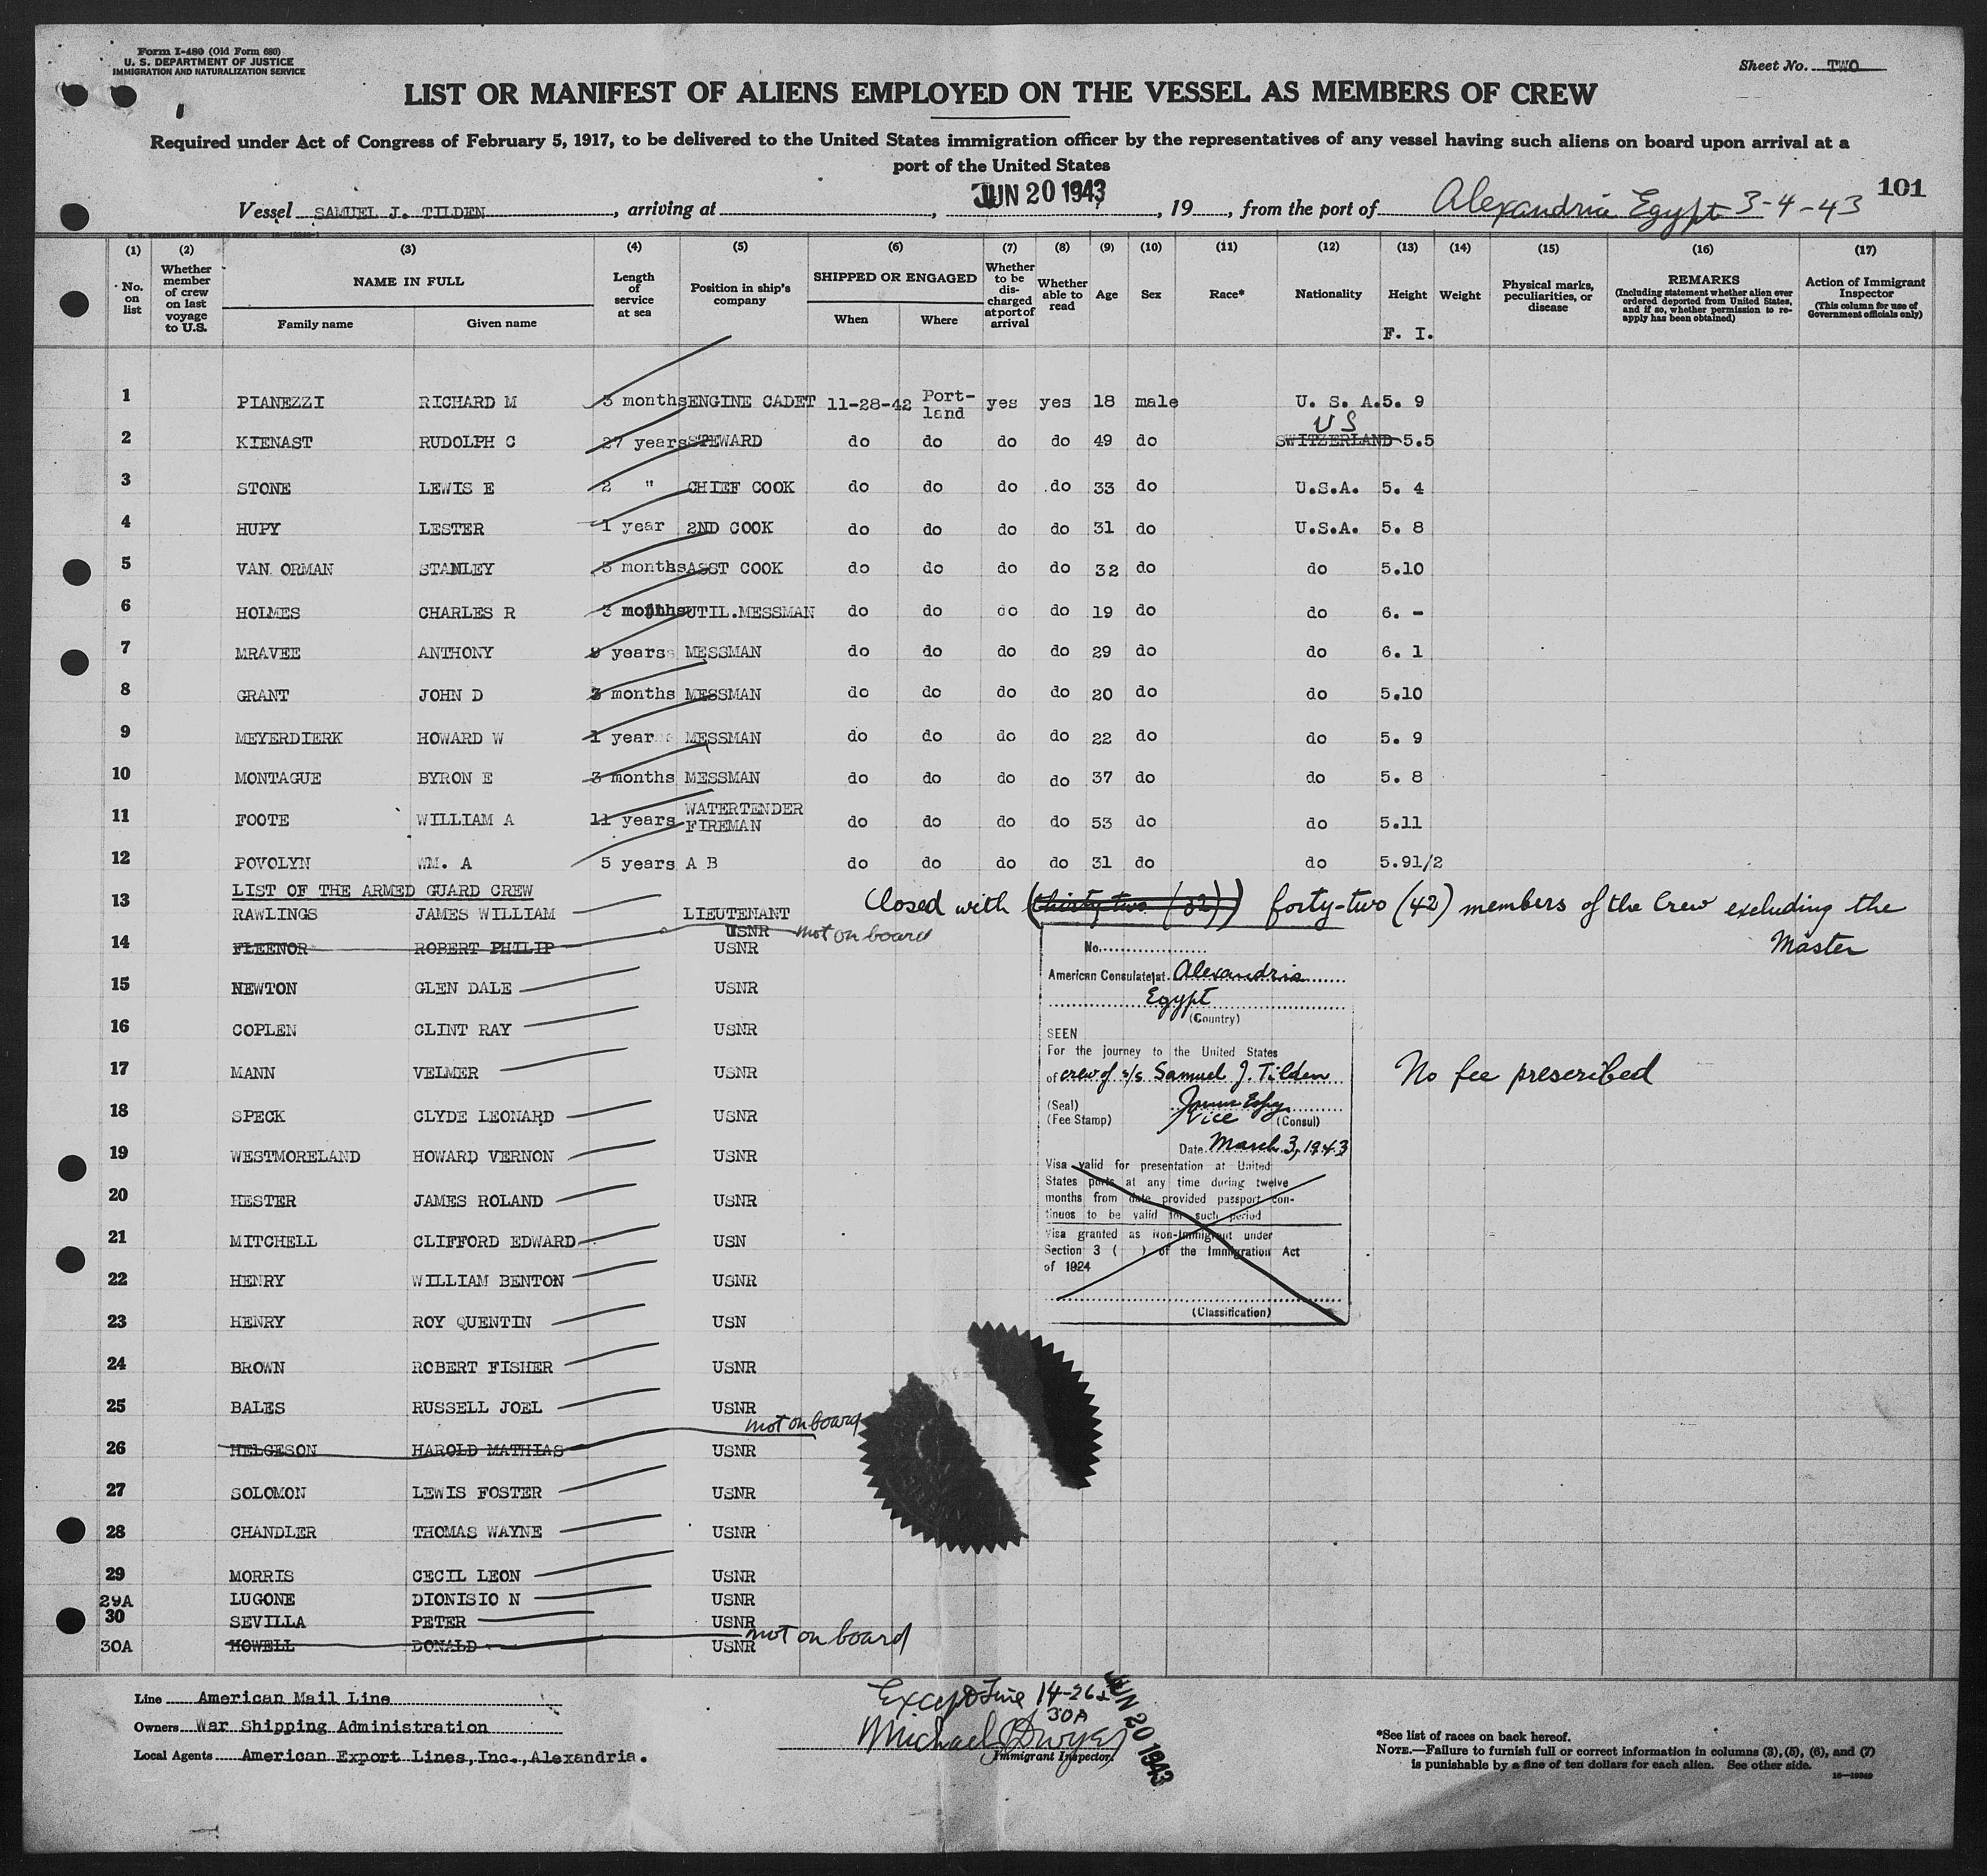 Form I-480 (Old Form 680)
U. S. DEPARTMENT OF JUSTICE
IMMIGRATION AND NATURALIZATION SERVICE
Sheet No. TWO
LIST OR MANIFEST OF ALIENS EMPLOYED ON THE VESSEL AS MEMBERS OF CREW
Required under Act of Congress of February 5, 1917, to be delivered to the United States immigration officer by the representatives of any vessel having such aliens on board upon arrival at a
port of the United States
101
Vessel SAMUEL J. TILDEN, arriving at, JUN 20 1943, 19, from the port of Alexandria Egypt 3-4-43
(1) (2) (3) (4) (5) (6) (7) (8) (9) (10) (11) (12) (13) (14) (15) (16) (17)
No. on list
Whether member of crew on last voyage to U.S.
NAME IN FULL
Family name Given name
Length of service at sea
Position in ship's company
SHIPPED OR ENGAGED
When Where
Whether to be discharged at port of arrival
Whether able to read
Age
Sex
Race*
Nationality
Height
F. I.
Weight
Physical marks, peculiarities, or disease
REMARKS
(Including statement whether alien ever ordered deported from United States, and if so, whether permission to re-apply has been obtained)
Action of Immigrant Inspector
(This column for use of Government officials only)
1 PIANEZZI RICHARD M 3 months ENGINE CADET 11-28-42 Port-land yes yes 18 male U. S. A. 5. 9
US
2 KIENAST RUDOLPH C 27 years STEWARD do do do do 49 do SWITZERLAND 5.5
3 STONE LEWIS E 2 " CHIEF COOK do do do do 33 do U.S.A. 5. 4
4 HUPY LESTER 1 year 2ND COOK do do do do 31 do U.S.A. 5. 8
5 VAN ORMAN STANLEY 5 months ASST COOK do do do do 32 do do 5.10
6 HOLMES CHARLES R 3 months UTIL.MESSMAN do do do do 19 do do 6. -
7 MRAVEE ANTHONY years MESSMAN do do do do 29 do do 6. 1
8 GRANT JOHN D 3 months MESSMAN do do do do 20 do do 5.10
9 MEYERDIERK HOWARD W 1 year MESSMAN do do do do 22 do do 5. 9
10 MONTAGUE BYRON E 3 months MESSMAN do do do do 37 do do 5. 8
11 FOOTE WILLIAM A 11 years WATERTENDER FIREMAN do do do do 53 do do 5.11
12 POVOLYN WM. A 5 years A B do do do do 31 do do 5.91/2
LIST OF THE ARMED GUARD CREW
13 RAWLINGS JAMES WILLIAM LIEUTENANT USNR
Closed with (thirty two (32)) forty-two (42) members of the Crew excluding the
Master
14 FLEENOR ROBERT PHILIP USNR not on board
15 NEWTON GLEN DALE USNR
16 COPLEN CLINT RAY USNR
17 MANN VELMER USNR
18 SPECK CLYDE LEONARD USNR
19 WESTMORELAND HOWARD VERNON USNR
20 HESTER JAMES ROLAND USNR
21 MITCHELL CLIFFORD EDWARD USN
22 HENRY WILLIAM BENTON USNR
23 HENRY ROY QUENTIN USN
24 BROWN ROBERT FISHER USNR
25 BALES RUSSELL JOEL USNR
26 HELGESON HAROLD MATHIAS USNR not on board
27 SOLOMON LEWIS FOSTER USNR
28 CHANDLER THOMAS WAYNE USNR
29 MORRIS CECIL LEON USNR
29A LUGONE DIONISIO N USNR
30 SEVILLA PETER USNR
30A HOWELL DONALD USNR not on board
No.
American Consulate at Alexandria
Egypt
(Country)
SEEN
For the journey to the United States
of crew of s/s Samuel J. Tilden
(Seal)
(Fee Stamp) Vice (Consul)
Date March 3, 1943
Visa valid for presentation at United
States ports at any time during twelve
months from date provided passport con-
tinues to be valid for such period
Visa granted as Non-Immigrant under
Section 3 ( ) of the Immigration Act
of 1924
(Classification)
No fee prescribed
Line American Mail Line
Owners War Shipping Administration
Local Agents American Export Lines, Inc., Alexandria.
Except Line 14-26 &
30A
Michael J Dwyer
Immigrant Inspector.
JUN 20 1943
*See list of races on back hereof.
NOTE.—Failure to furnish full or correct information in columns (3), (5), (6), and (7)
is punishable by a fine of ten dollars for each alien. See other side.
16-19349